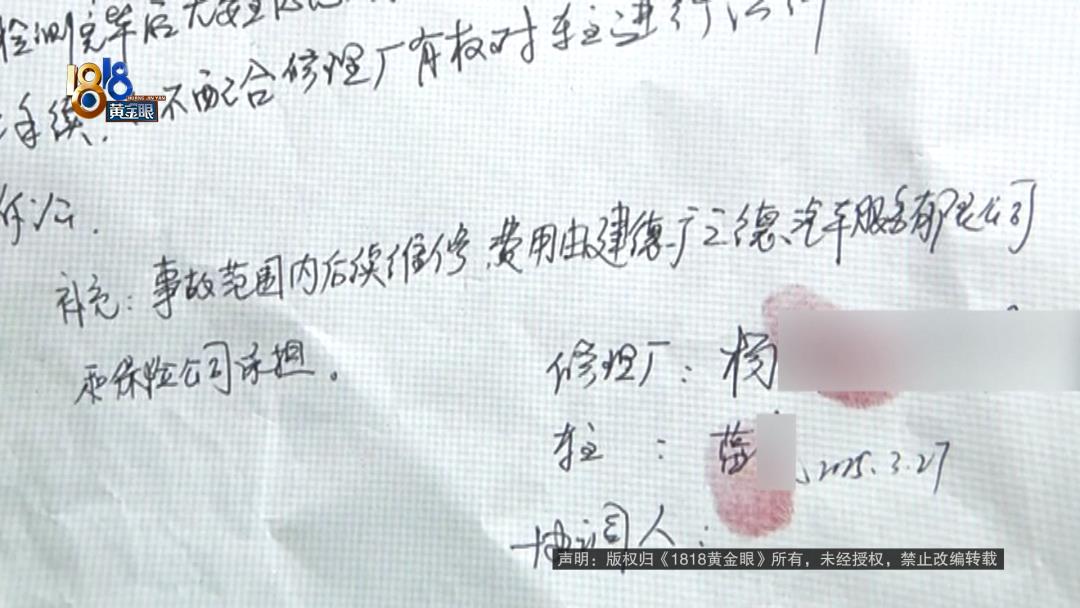 检测完毕后无安全
1818
黄金眼
手续,不配合修理厂有权对车主进行
诉讼.
补充:事故范围内后续维修费用由建德广之德汽车服务有限公司
和保险公司承担。
修理厂:杨
车主:
2025.3.27
协调人:
声明:版权归《1818黄金眼》所有,未经授权,禁止改编转载